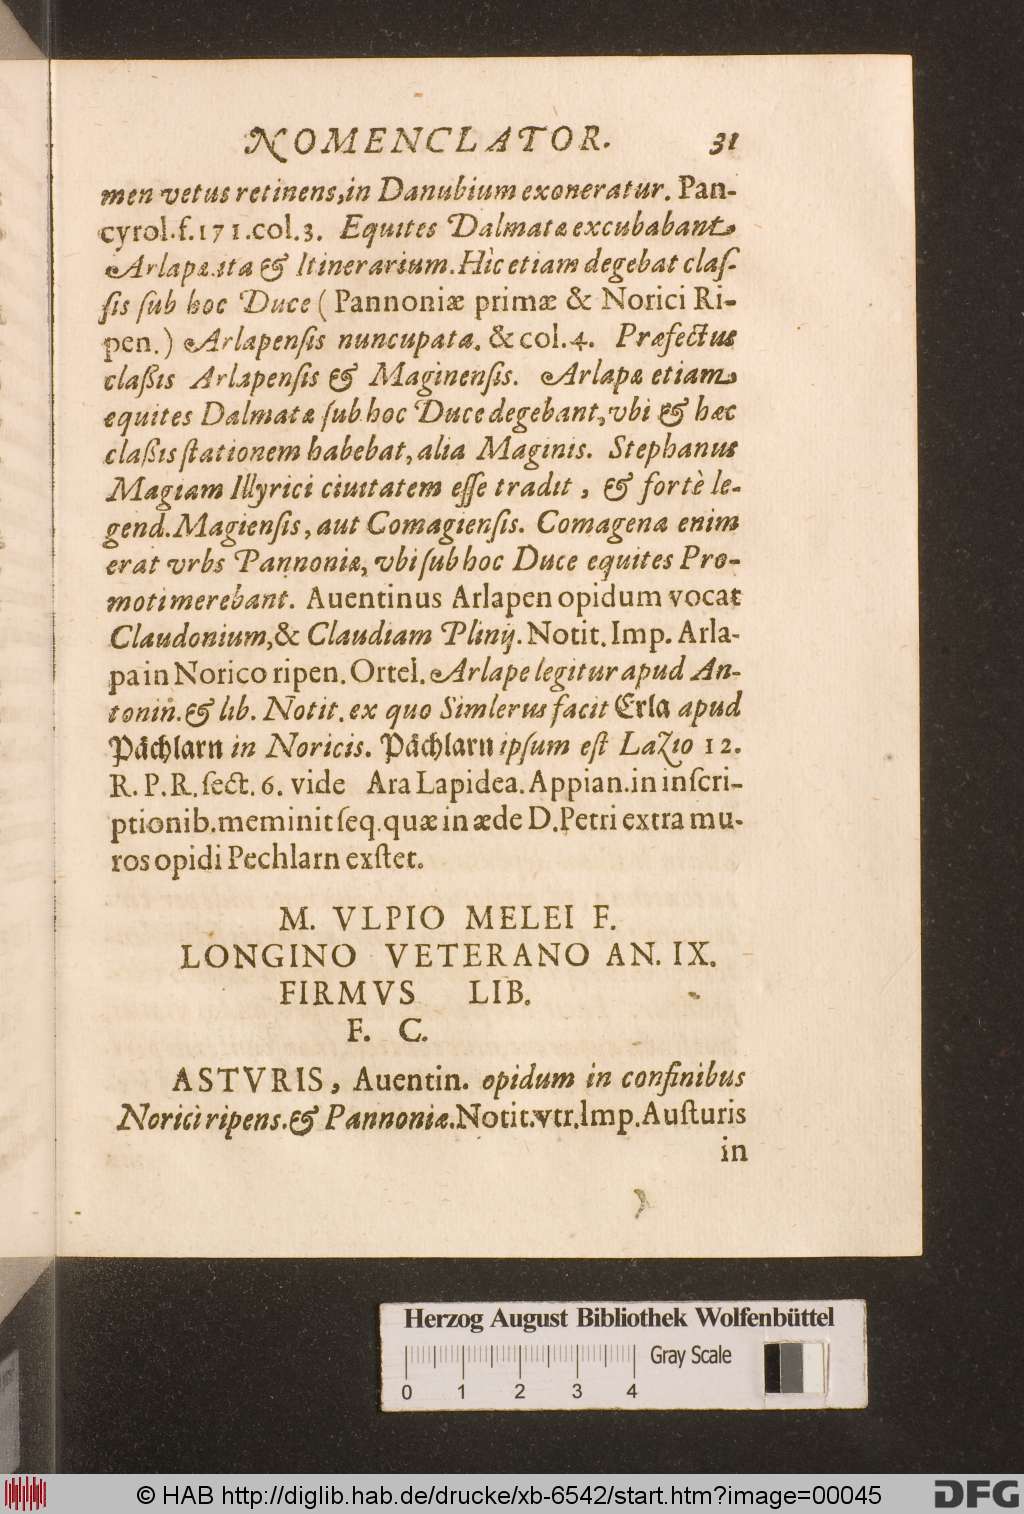 NOMENCLATOR. 31
men vetus retinens, in Danubium exoneratur. Pan-
cyrol. f. 171. col. 3. Equites Dalmatæ excubabant
Arlapæ. ita & Itinerarium. Hìc etiam degebat claſ-
ſis ſub hoc Duce (Pannoniæ primæ & Norici Ri-
pen.) Arlapenſis nuncupata. & col. 4. Præfectus
claßis Arlapenſis & Maginenſis. Arlapæ etiam
equites Dalmatæ ſub hoc Duce degebant, vbi & hæc
claßis ſtationem habebat, alia Maginis. Stephanus
Magiam Illyrici ciuitatem eſſe tradit, & fortè le-
gend. Magienſis, aut Comagienſis. Comagena enim
erat vrbs Pannoniæ, vbi ſub hoc Duce equites Pro-
moti merebant. Auentinus Arlapen opidum vocat
Claudonium, & Claudiam Plinij. Notit. Imp. Arla-
pa in Norico ripen. Ortel. Arlape legitur apud An-
tonin. & lib. Notit. ex quo Simlerus facit Erla apud
Påchlarn in Noricis. Påchlarn ipſum eſt Lazio 12.
R. P. R. ſect. 6. vide Ara Lapidea. Appian. in inſcri-
ptionib. meminit ſeq. quæ in æde D. Petri extra mu-
ros opidi Pechlarn exſtet.
M. VLPIO MELEI F.
LONGINO VETERANO AN. IX.
FIRMVS LIB.
F. C.
ASTVRIS, Auentin. opidum in confinibus
Norici ripens. & Pannoniæ. Notit. vtr. Imp. Auſturis
in
Herzog August Bibliothek Wolfenbüttel
Gray Scale
0 1 2 3 4
© HAB http://diglib.hab.de/drucke/xb-6542/start.htm?image=00045
DFG